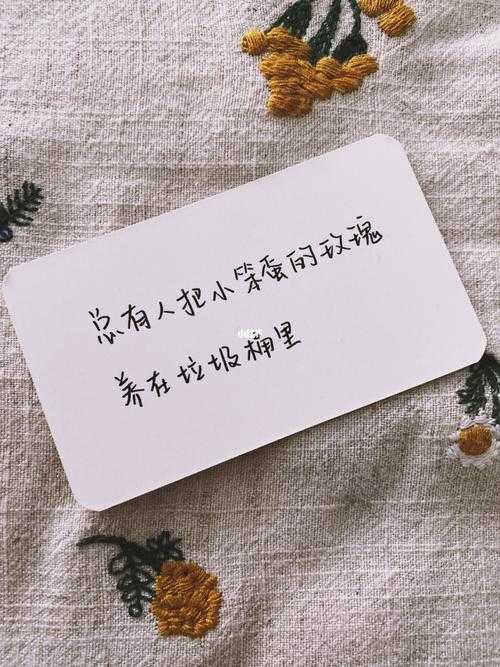 总有人把小笨蛋的玫瑰
养在垃圾棚里